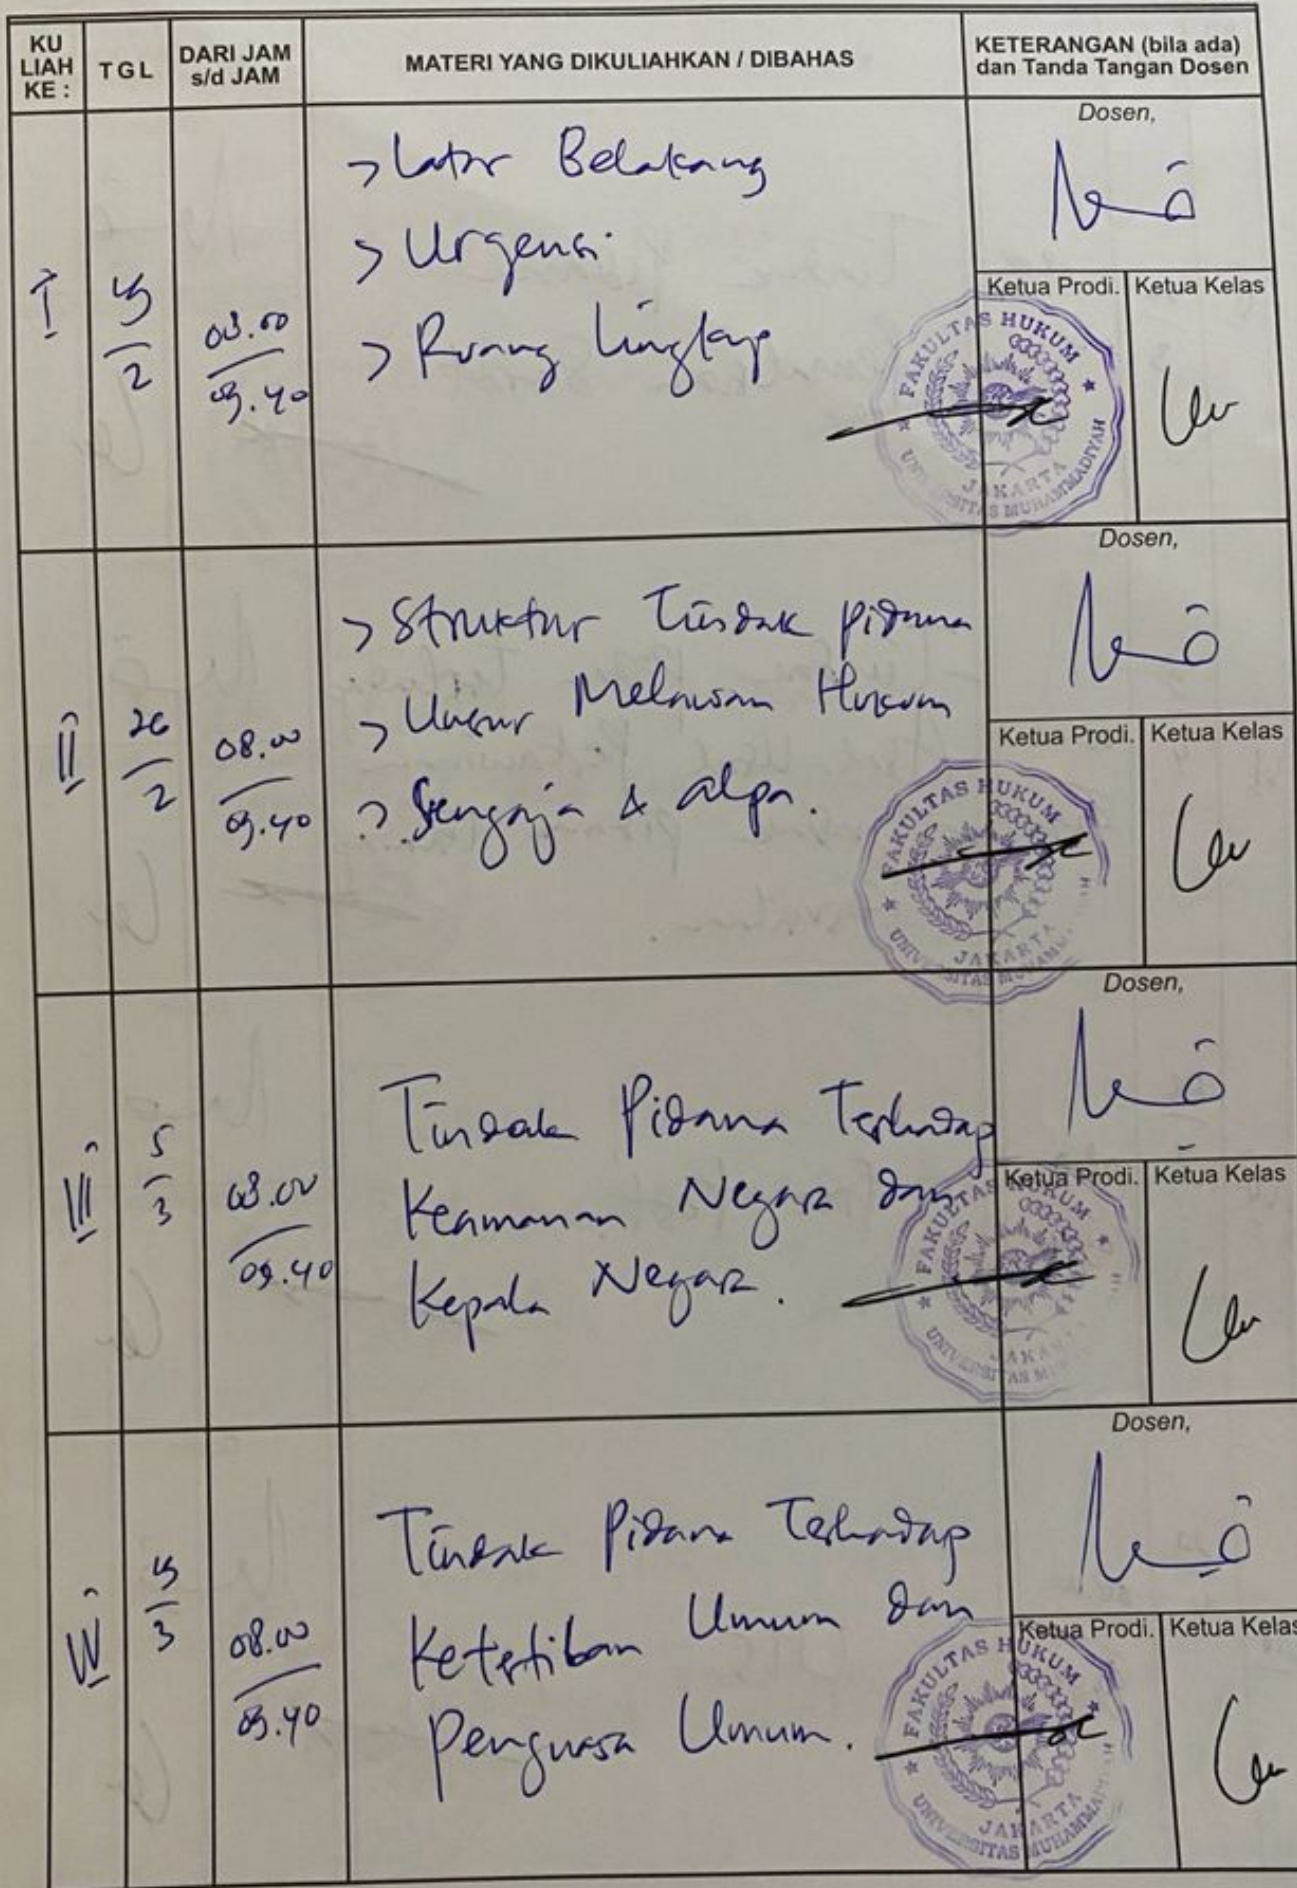 KU
LIAH
KE :
TGL
DARI JAM
s/d JAM
MATERI YANG DIKULIAHKAN / DIBAHAS
KETERANGAN (bila ada)
dan Tanda Tangan Dosen
I
2
08.00
09.40
> Latar Belakang
> Urgensi
> Ruang Lingkup
Dosen,
Ketua Prodi.
Ketua Kelas
FAKULTAS HUKUM
UNIVERSITAS MUHAMMADIYAH
JAKARTA
II
26
2
08.00
09.40
> Struktur Tindak pidana
> Unsur Melawan Hukum
> Sengaja & alpa.
Dosen,
Ketua Prodi.
Ketua Kelas
FAKULTAS HUKUM
JAKARTA
III
5
3
08.00
09.40
Tindak Pidana Terhadap
Keamanan Negara dan
Kepala Negara.
Dosen,
Ketua Prodi.
Ketua Kelas
FAKULTAS HUKUM
IV
3
08.00
09.40
Tindak Pidana Terhadap
Ketertiban Umum dan
Penguasa Umum.
Dosen,
Ketua Prodi.
Ketua Kelas
FAKULTAS HUKUM
UNIVERSITAS MUHAMMADIYAH
JAKARTA